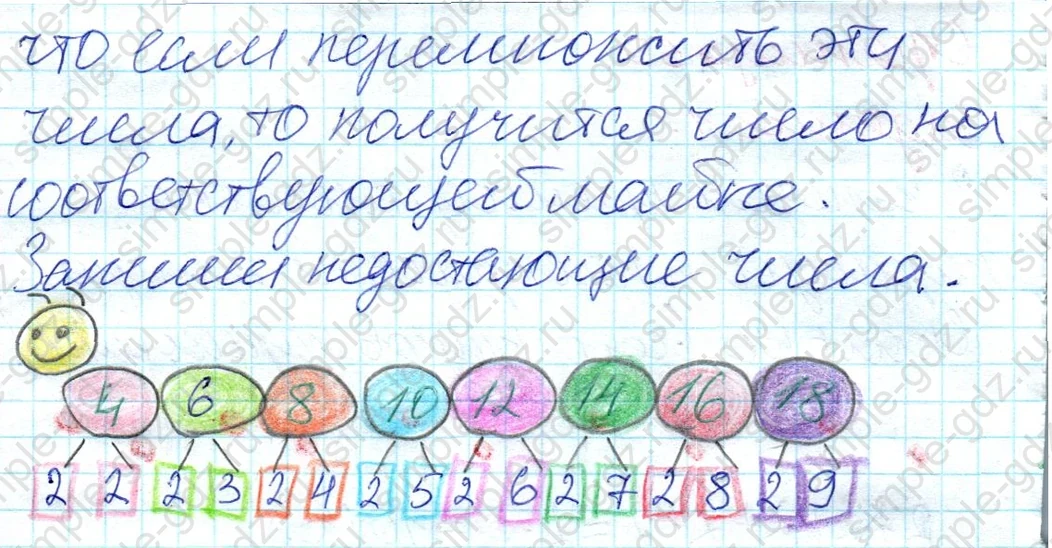 что если перемножить эти
числа, то получится число на
соответствующей майке.
Запиши недостающие числа.
4 6 8 10 12 14 16 18
2 2 2 3 2 4 2 5 2 6 2 7 2 8 2 9
simple-gdz.ru